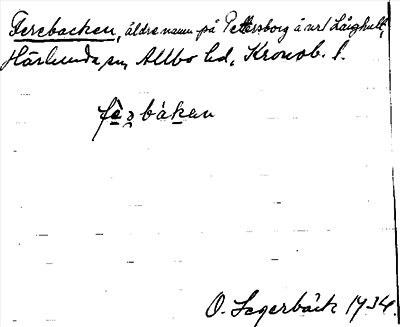 Ferebacken, äldre namn på Pettersborg å nr 1 Långhult,
Härlunda sn, Allbo hd, Kronob. l.
fèrbákan
O. Lagerbäck 1934.